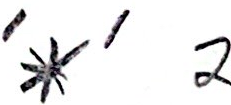 '*' 2